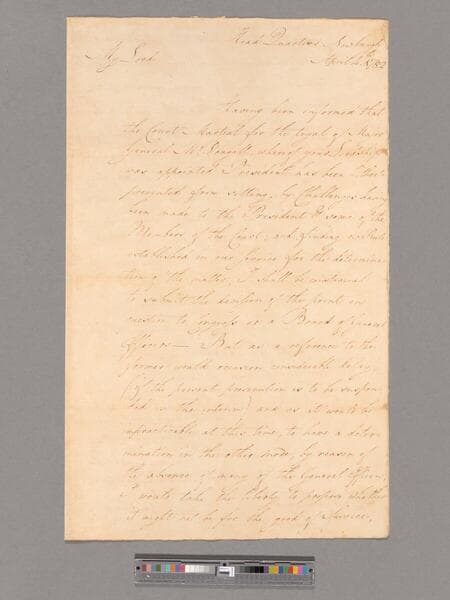 Head Quarters Newburgh
My Lord April 1782
Having been informed that
the Court Martial for the tryal of Major
General McDougall, whereof your Lordship
was appointed President has been hitherto
prevented from setting, by Challenges having
been made to the President & some of the
Members of the Court; and finding no Rule
established in our service for the determina-
tion of the matter, I shall be constrained
to submit the decision of the point in
question to Congress or a Board of General
Officers — But as a reference to the
former would occasion considerable delay,
(if the present prosecution is to be suspen-
ded in the interim) and as it would be
impracticable at this time, to have a deter-
mination in the other mode, by reason of
the absence of many of the General Officers,
I would take the liberty to propose whether
it might not be for the good of Service,